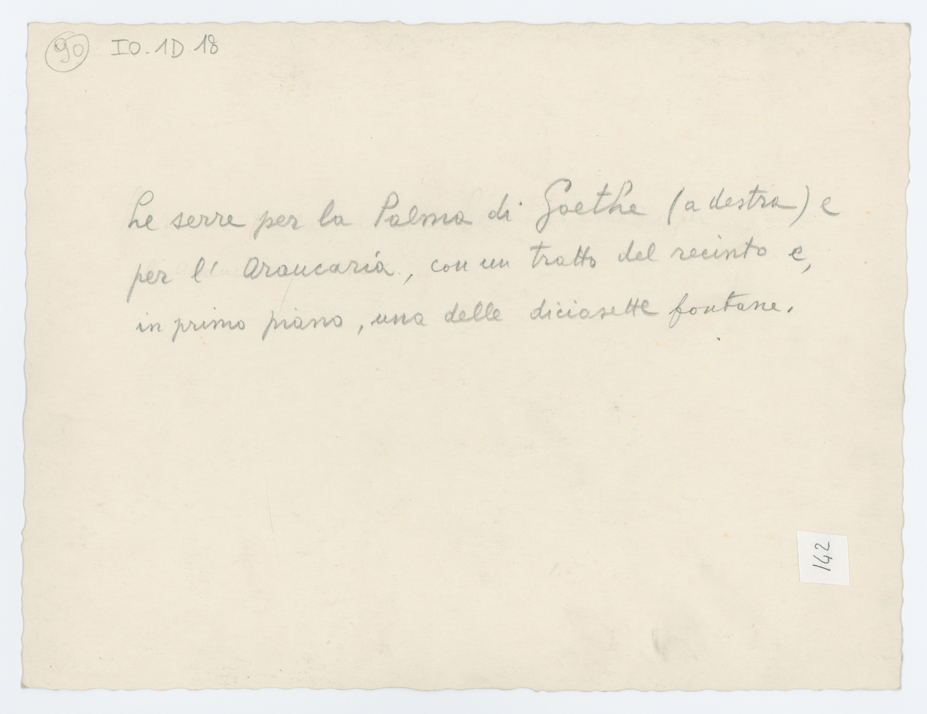 90 IO.1D 18
Le serre per la Palma di Goethe (a destra) e
per l' Araucaria, con un tratto del recinto e,
in primo piano, una delle diciasette fontane.
142